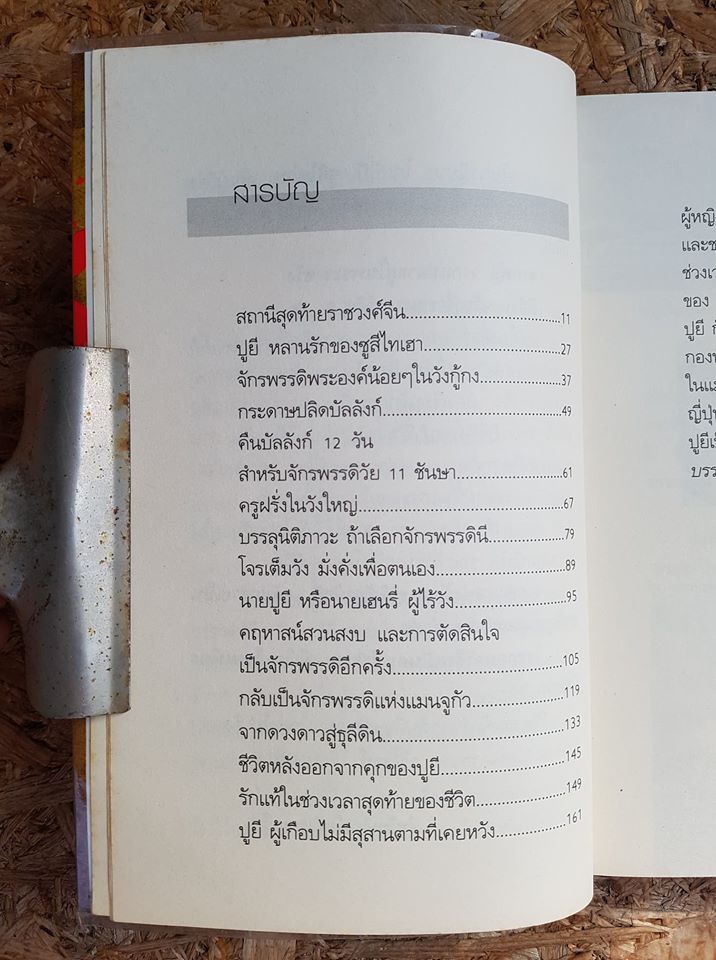 สารบัญ
สถานีสุดท้ายราชวงศ์จีน........................................11
ปูยี หลานรักของซูสีไทเฮา....................................27
จักรพรรดิพระองค์น้อยๆในวังกู้กง.....................37
กระดาษปลิดบัลลังก์............................................49
คืนบัลลังก์ 12 วัน
สำหรับจักรพรรดิวัย 11 ชันษา...........................61
ครูฝรั่งในวังใหญ่..................................................67
บรรลุนิติภาวะ ถ้าเลือกจักรพรรดินี.....................79
โจรเต็มวัง มั่งคั่งเพื่อตนเอง................................89
นายปูยี หรือนายเฮนรี่ ผู้ไร้วัง............................95
คฤหาสน์สวนสงบ และการตัดสินใจ
เป็นจักรพรรดิอีกครั้ง.........................................105
กลับเป็นจักรพรรดิแห่งแมนจูกัว.......................119
จากดวงดาวสู่ธุลีดิน...........................................133
ชีวิตหลังออกจากคุกของปูยี...............................145
รักแท้ในช่วงเวลาสุดท้ายของชีวิต.....................149
ปูยี ผู้เกือบไม่มีสุสานตามที่เคยหวัง.................161
ของ
ปูยี